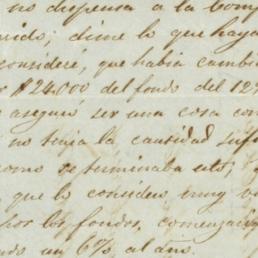 no dispensa a la comp
rido; dime lo que haya
consideré, que habia cambia
$24.000 del fondo del 12%
aseguró ser una cosa con
no traia la cantidad sufi
como se terminaba esto;
que lo considero muy va
por los fondos, comenza
un 6% al año.